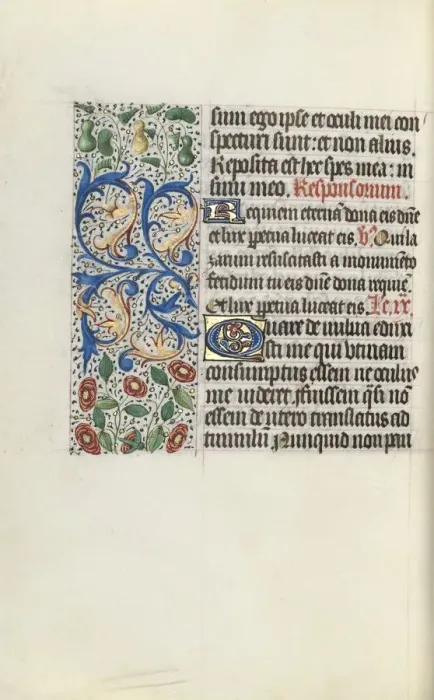 sum ego ipse et oculi mei con
specturi sunt: et non alius.
Reposita est hec spes mea: in
sinu meo. Responsorium.
Requiem eternā dona eis dn̄e
et lux ꝑpetua luceat eis. ℣. Qui la
zarum resuscitasti a monumēto
fetidum tu eis dn̄e dona requiē.
Et lux ꝑpetua luceat eis. Lc. ix.
Quare de vulua eduxi
sti me qui vtinam
consumptus essem ne oculus
me videret fuissem q̄si nō
essem de vtero translatus ad
tumulū Nunquid non pau